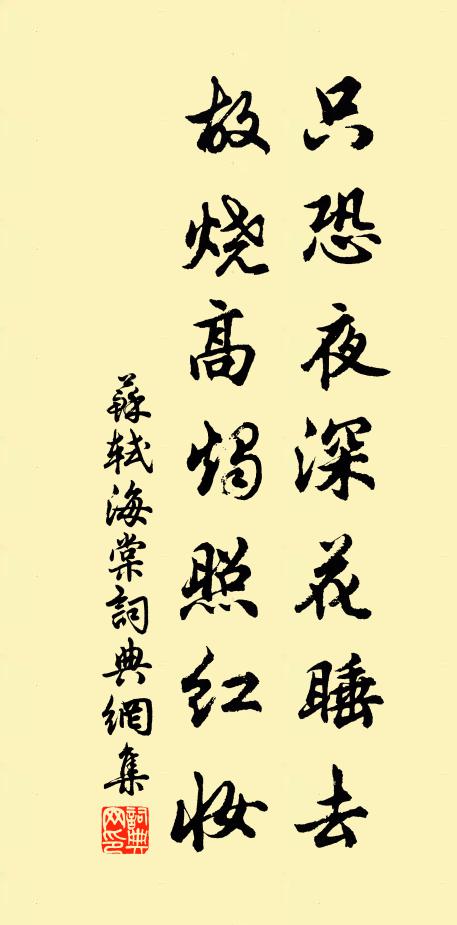 只恐夜深花睡去
故烧高烛照红妆
蘇轼海棠詞典網集
詞典网印